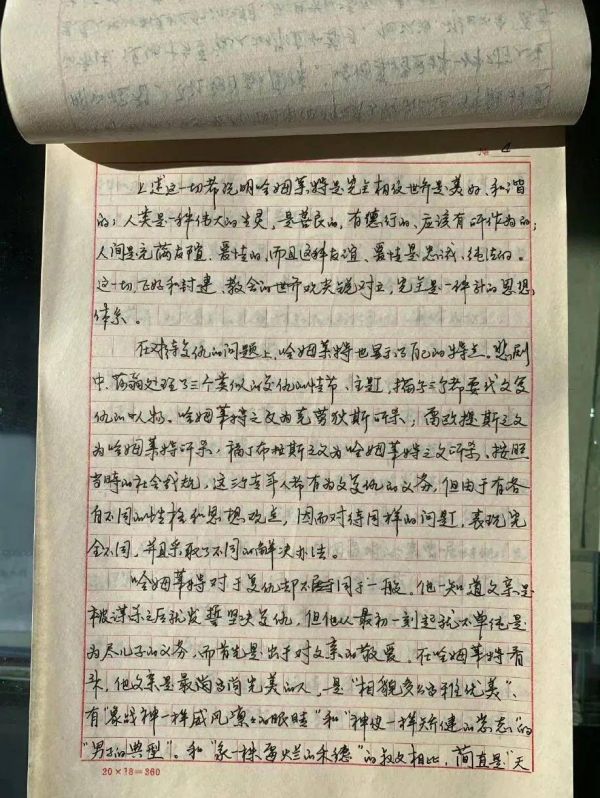 4
上述这一切都说明哈姆莱特是完全相信世界是美好、和谐
的；人类是一种伟大的生灵，是善良的，有德行的，应该有所作为的；
人间是充满友谊、爱情的，而且这种友谊、爱情是忠诚、纯洁的。
这一切，正好和封建、教会的世界观尖锐对立，完全是一种新的思想
体系。
在对待复仇的问题上，哈姆莱特也显示了自己的特点。悲剧
中，莎翁处理了三个类似的复仇的情节、主题，描写三个都要代父复
仇的人物。哈姆莱特之父为克劳狄斯所杀；雷欧提斯之父
为哈姆莱特所杀，福丁布拉斯之父为哈姆莱特之父所杀，按照
当时的社会我规，这三个青年人都有为父复仇的义务，但由于有各
自不同的性格和思想观点，因而对待同样的问题，表现完
全不同，并且采取了不同的解决办法。
哈姆莱特对于复仇却不同于一般。他一知道父亲是
被谋杀之后就发誓坚决复仇，但他从最初一刻起就不单纯是
为尽儿子的义务，而首先是出于对父亲的敬爱，在哈姆莱特看
来，他父亲是最高尚完美的人，是“相貌多么高雅优美”、
有“像战神一样威风凛凛的眼睛”和“神使一样矫健的姿态”的
“男子的典型”。和“像一株霉烂的禾穗”的叔父相比，简直是“天
20×18=360